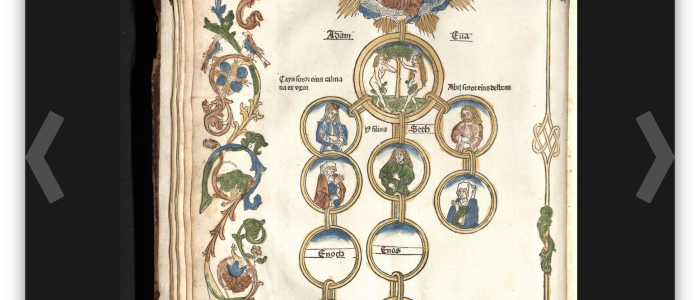 Adam
Eua
Cayn soror eius calma
na et vxor
Abel soror eius delbora
filius Seth
Enoch
Enos